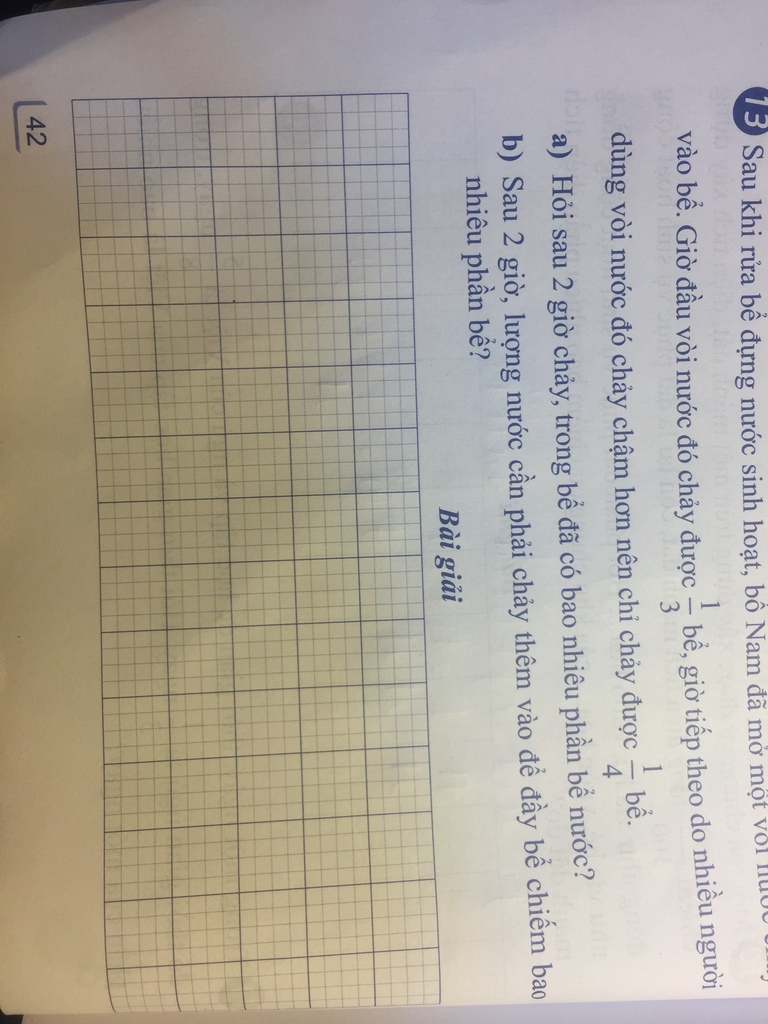 13 Sau khi rửa bể đựng nước sinh hoạt, bố Nam đã mở một vòi nước
vào bể. Giờ đầu vòi nước đó chảy được 1/3 bể, giờ tiếp theo do nhiều người
dùng vòi nước đó chảy chậm hơn nên chỉ chảy được 1/4 bể.
a) Hỏi sau 2 giờ chảy, trong bể đã có bao nhiêu phần bể nước?
b) Sau 2 giờ, lượng nước cần phải chảy thêm vào để đầy bể chiếm bao
nhiêu phần bể?
Bài giải
42